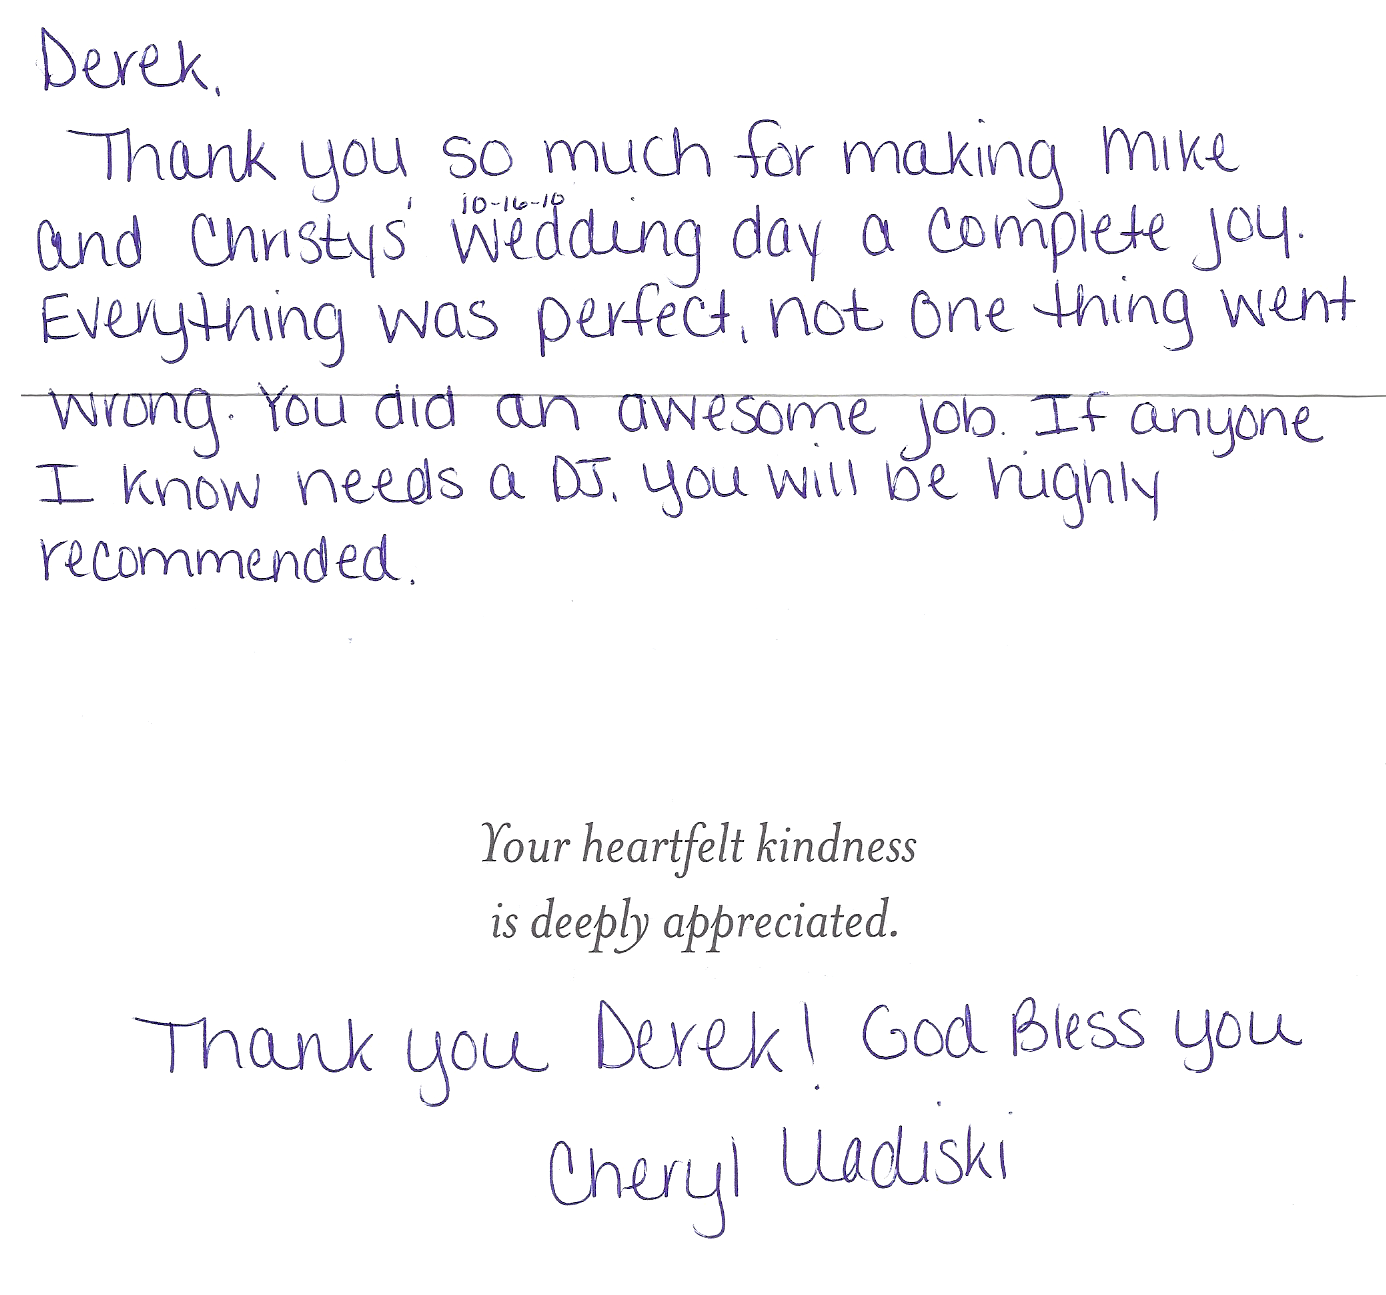 Derek,
Thank you so much for making Mike
10-16-10
and Christys' wedding day a complete joy.
Everything was perfect, not one thing went
wrong. You did an awesome job. If anyone
I know needs a DJ, you will be highly
recommended.
Your heartfelt kindness
is deeply appreciated.
Thank you Derek! God Bless you
Cheryl